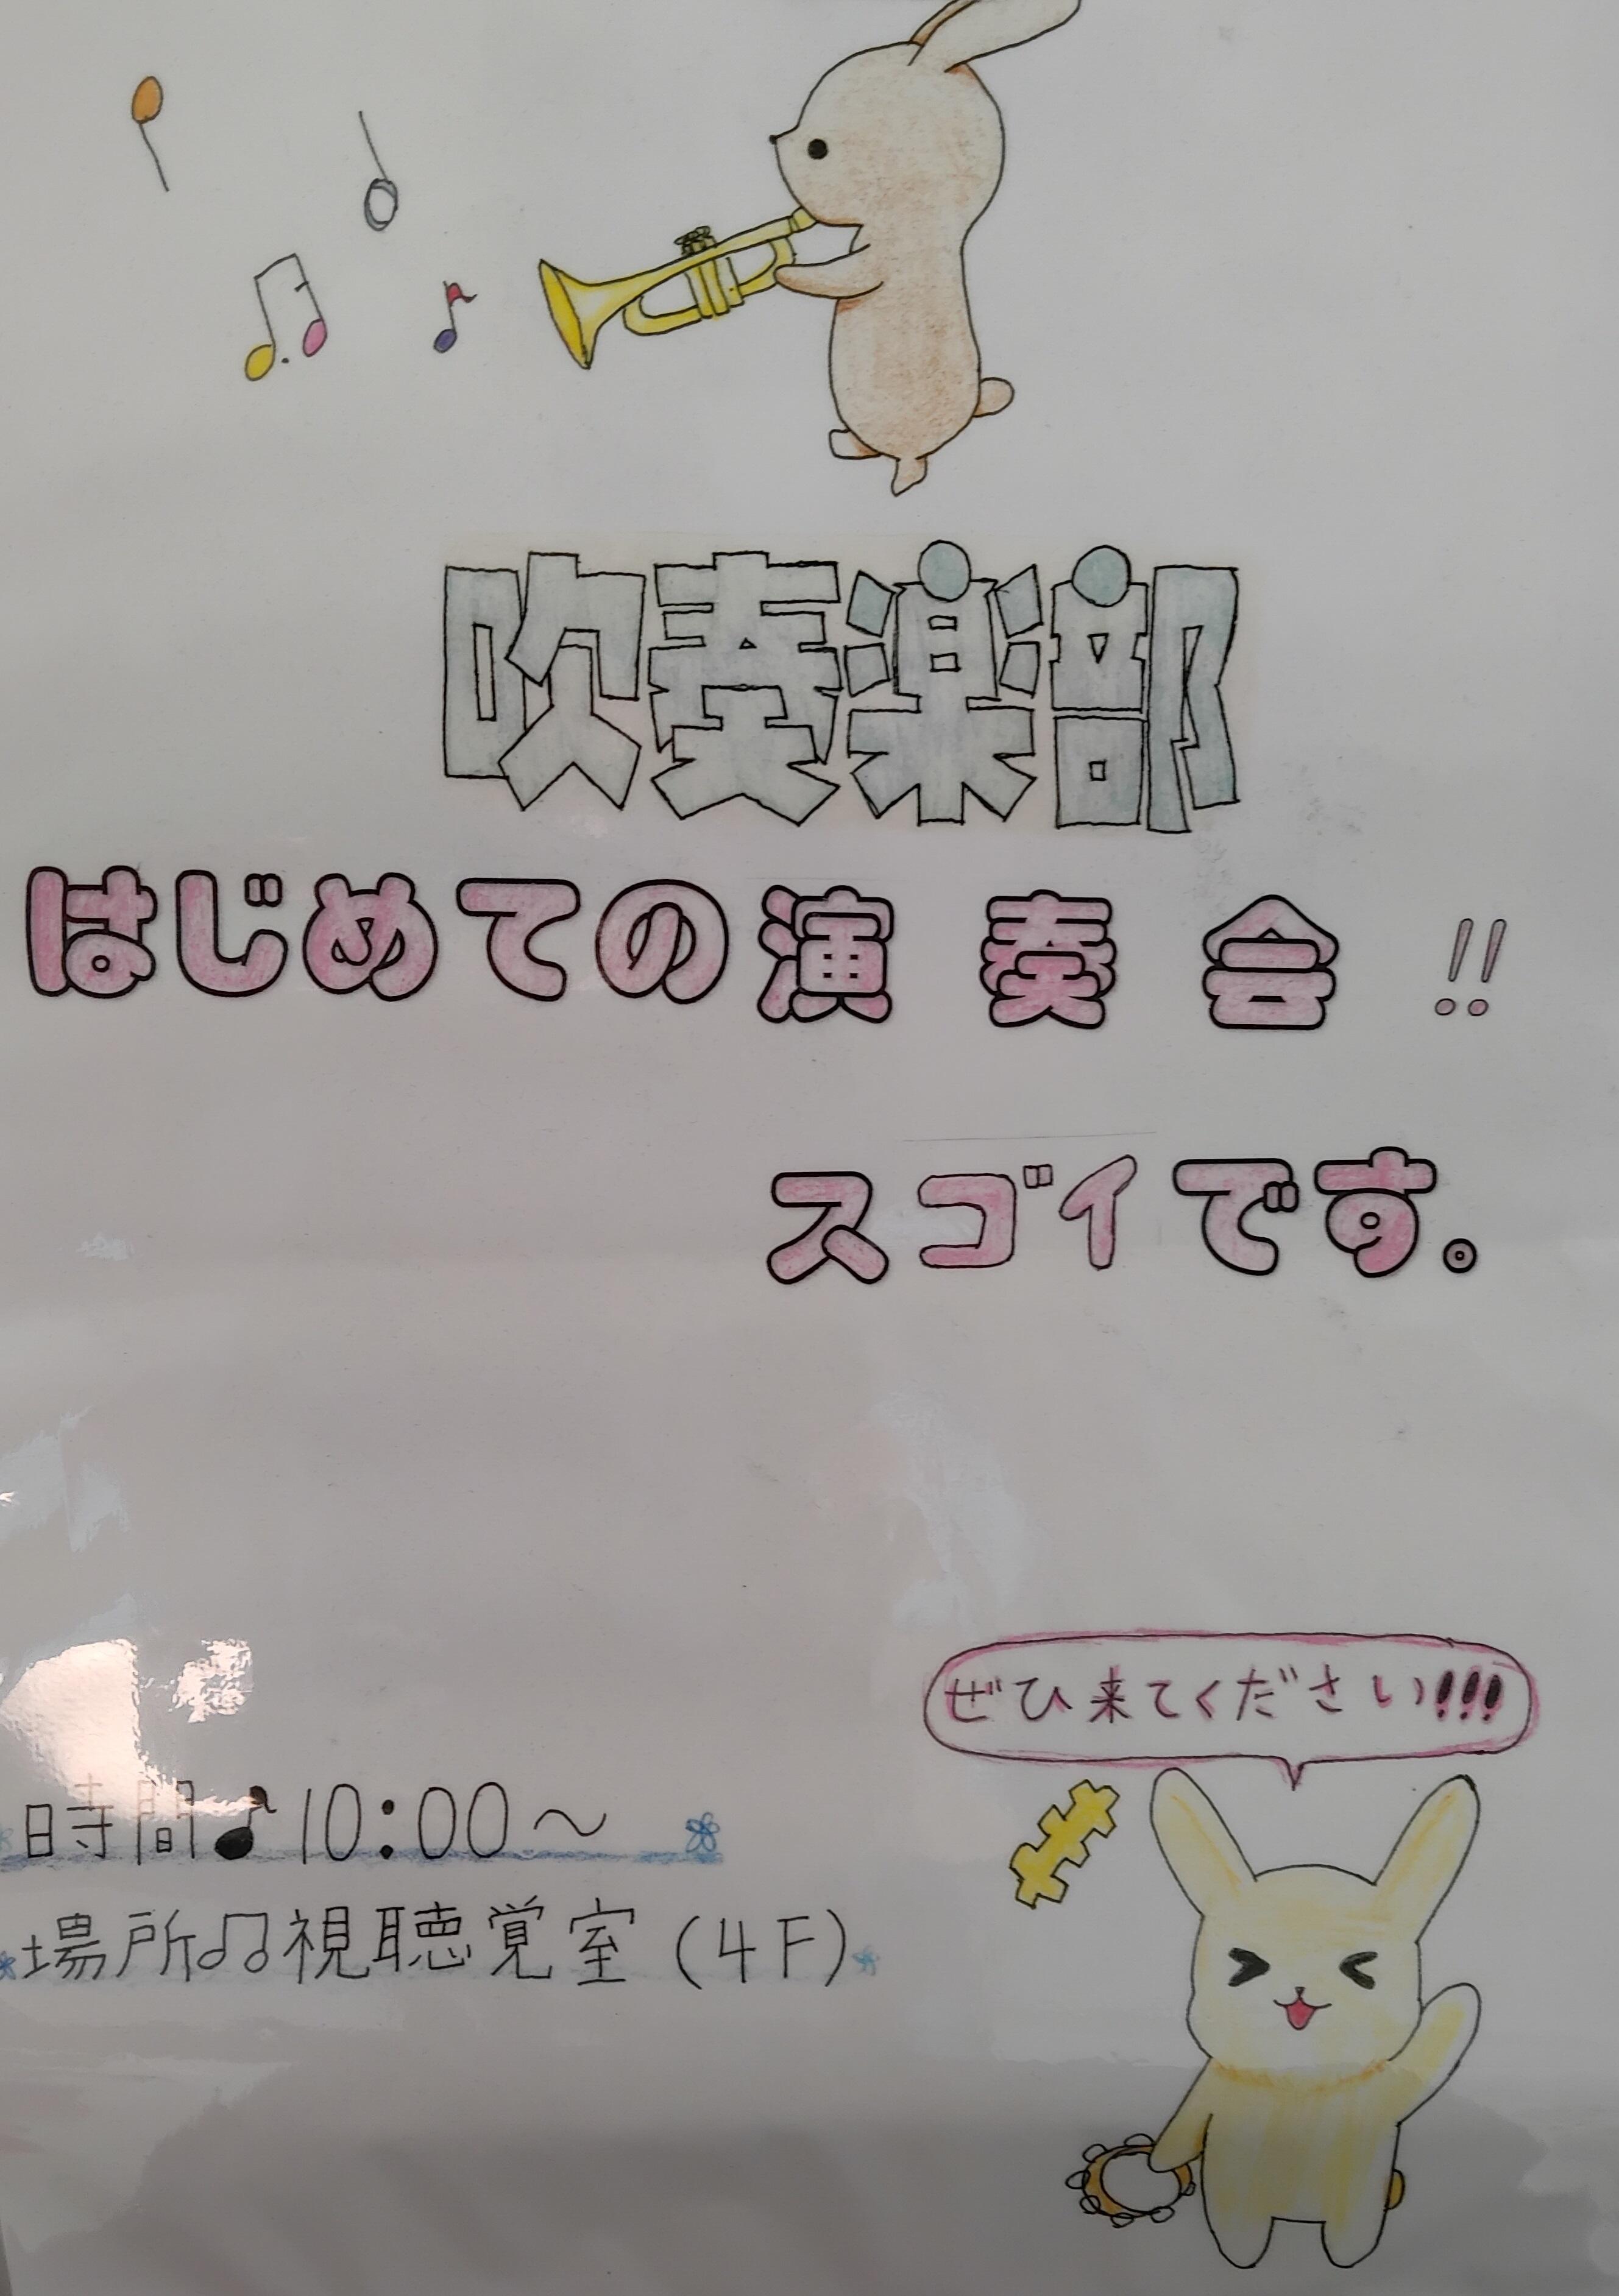 吹奏楽部
はじめての演奏会!!
スゴイです。
ぜひ来てください!!!
時間♪10:00～
場所♫視聴覚室(4F)